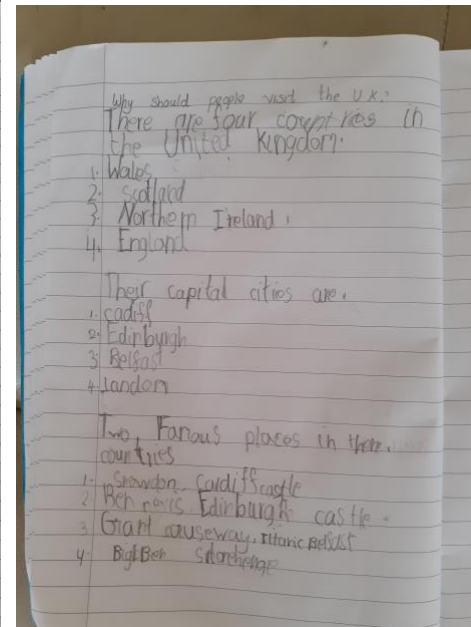 Why should people visit the U.K.
There are four countries in
the United Kingdom.
1. Wales
2. Scotland
3. Northern Ireland.
4. England
Their capital cities are.
1. cadiff
2. Edinburgh
3. Belfast
4. London
Two, Famous places in there.
countries
1. Snowdon, Cardiff castle
2 Ben nevis Edinburgh castle.
3 Giant causeway, Titanic Belfast
4. Big Ben Stonehenge